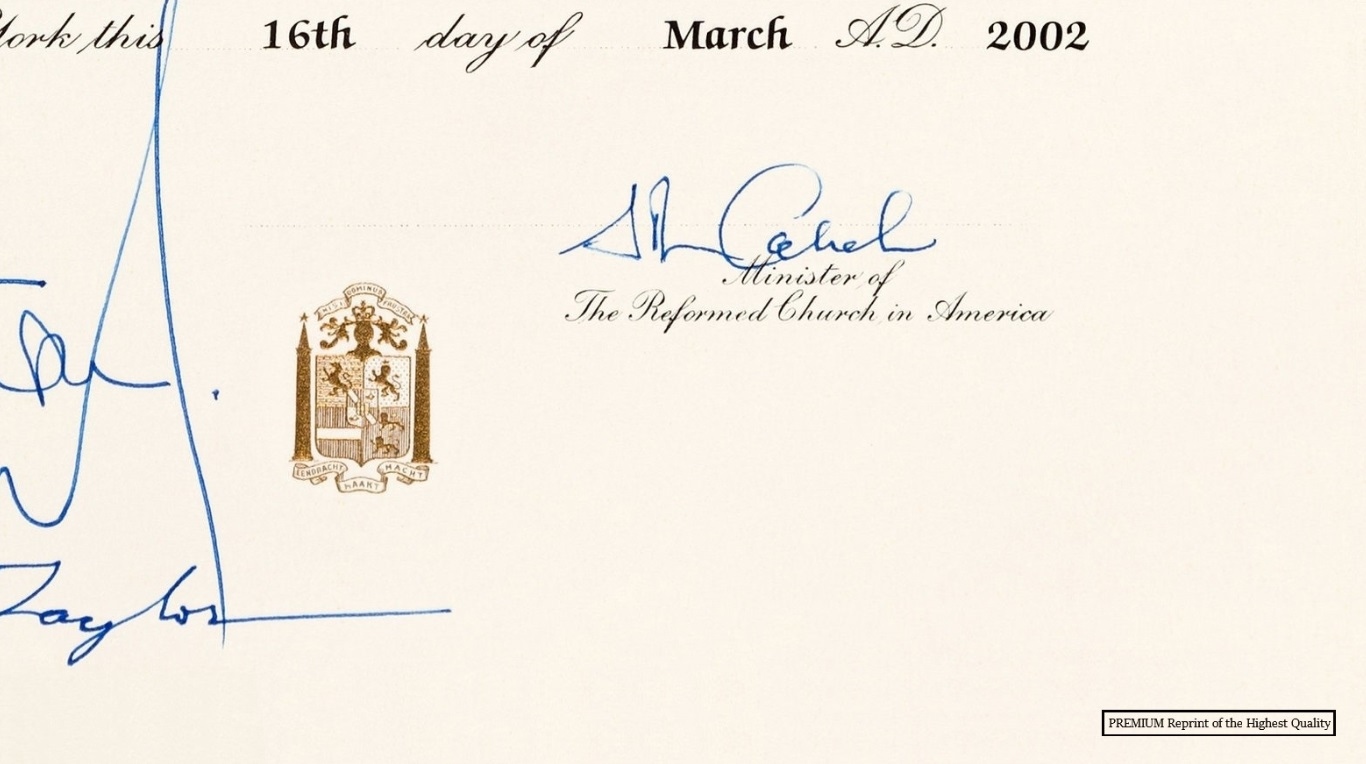 York this 16th day of March A.D. 2002
Minister of
The Reformed Church in America
NISI DOMINUS FRUSTRA
EENDRACHT MAAKT MACHT
Taylor
PREMIUM Reprint of the Highest Quality